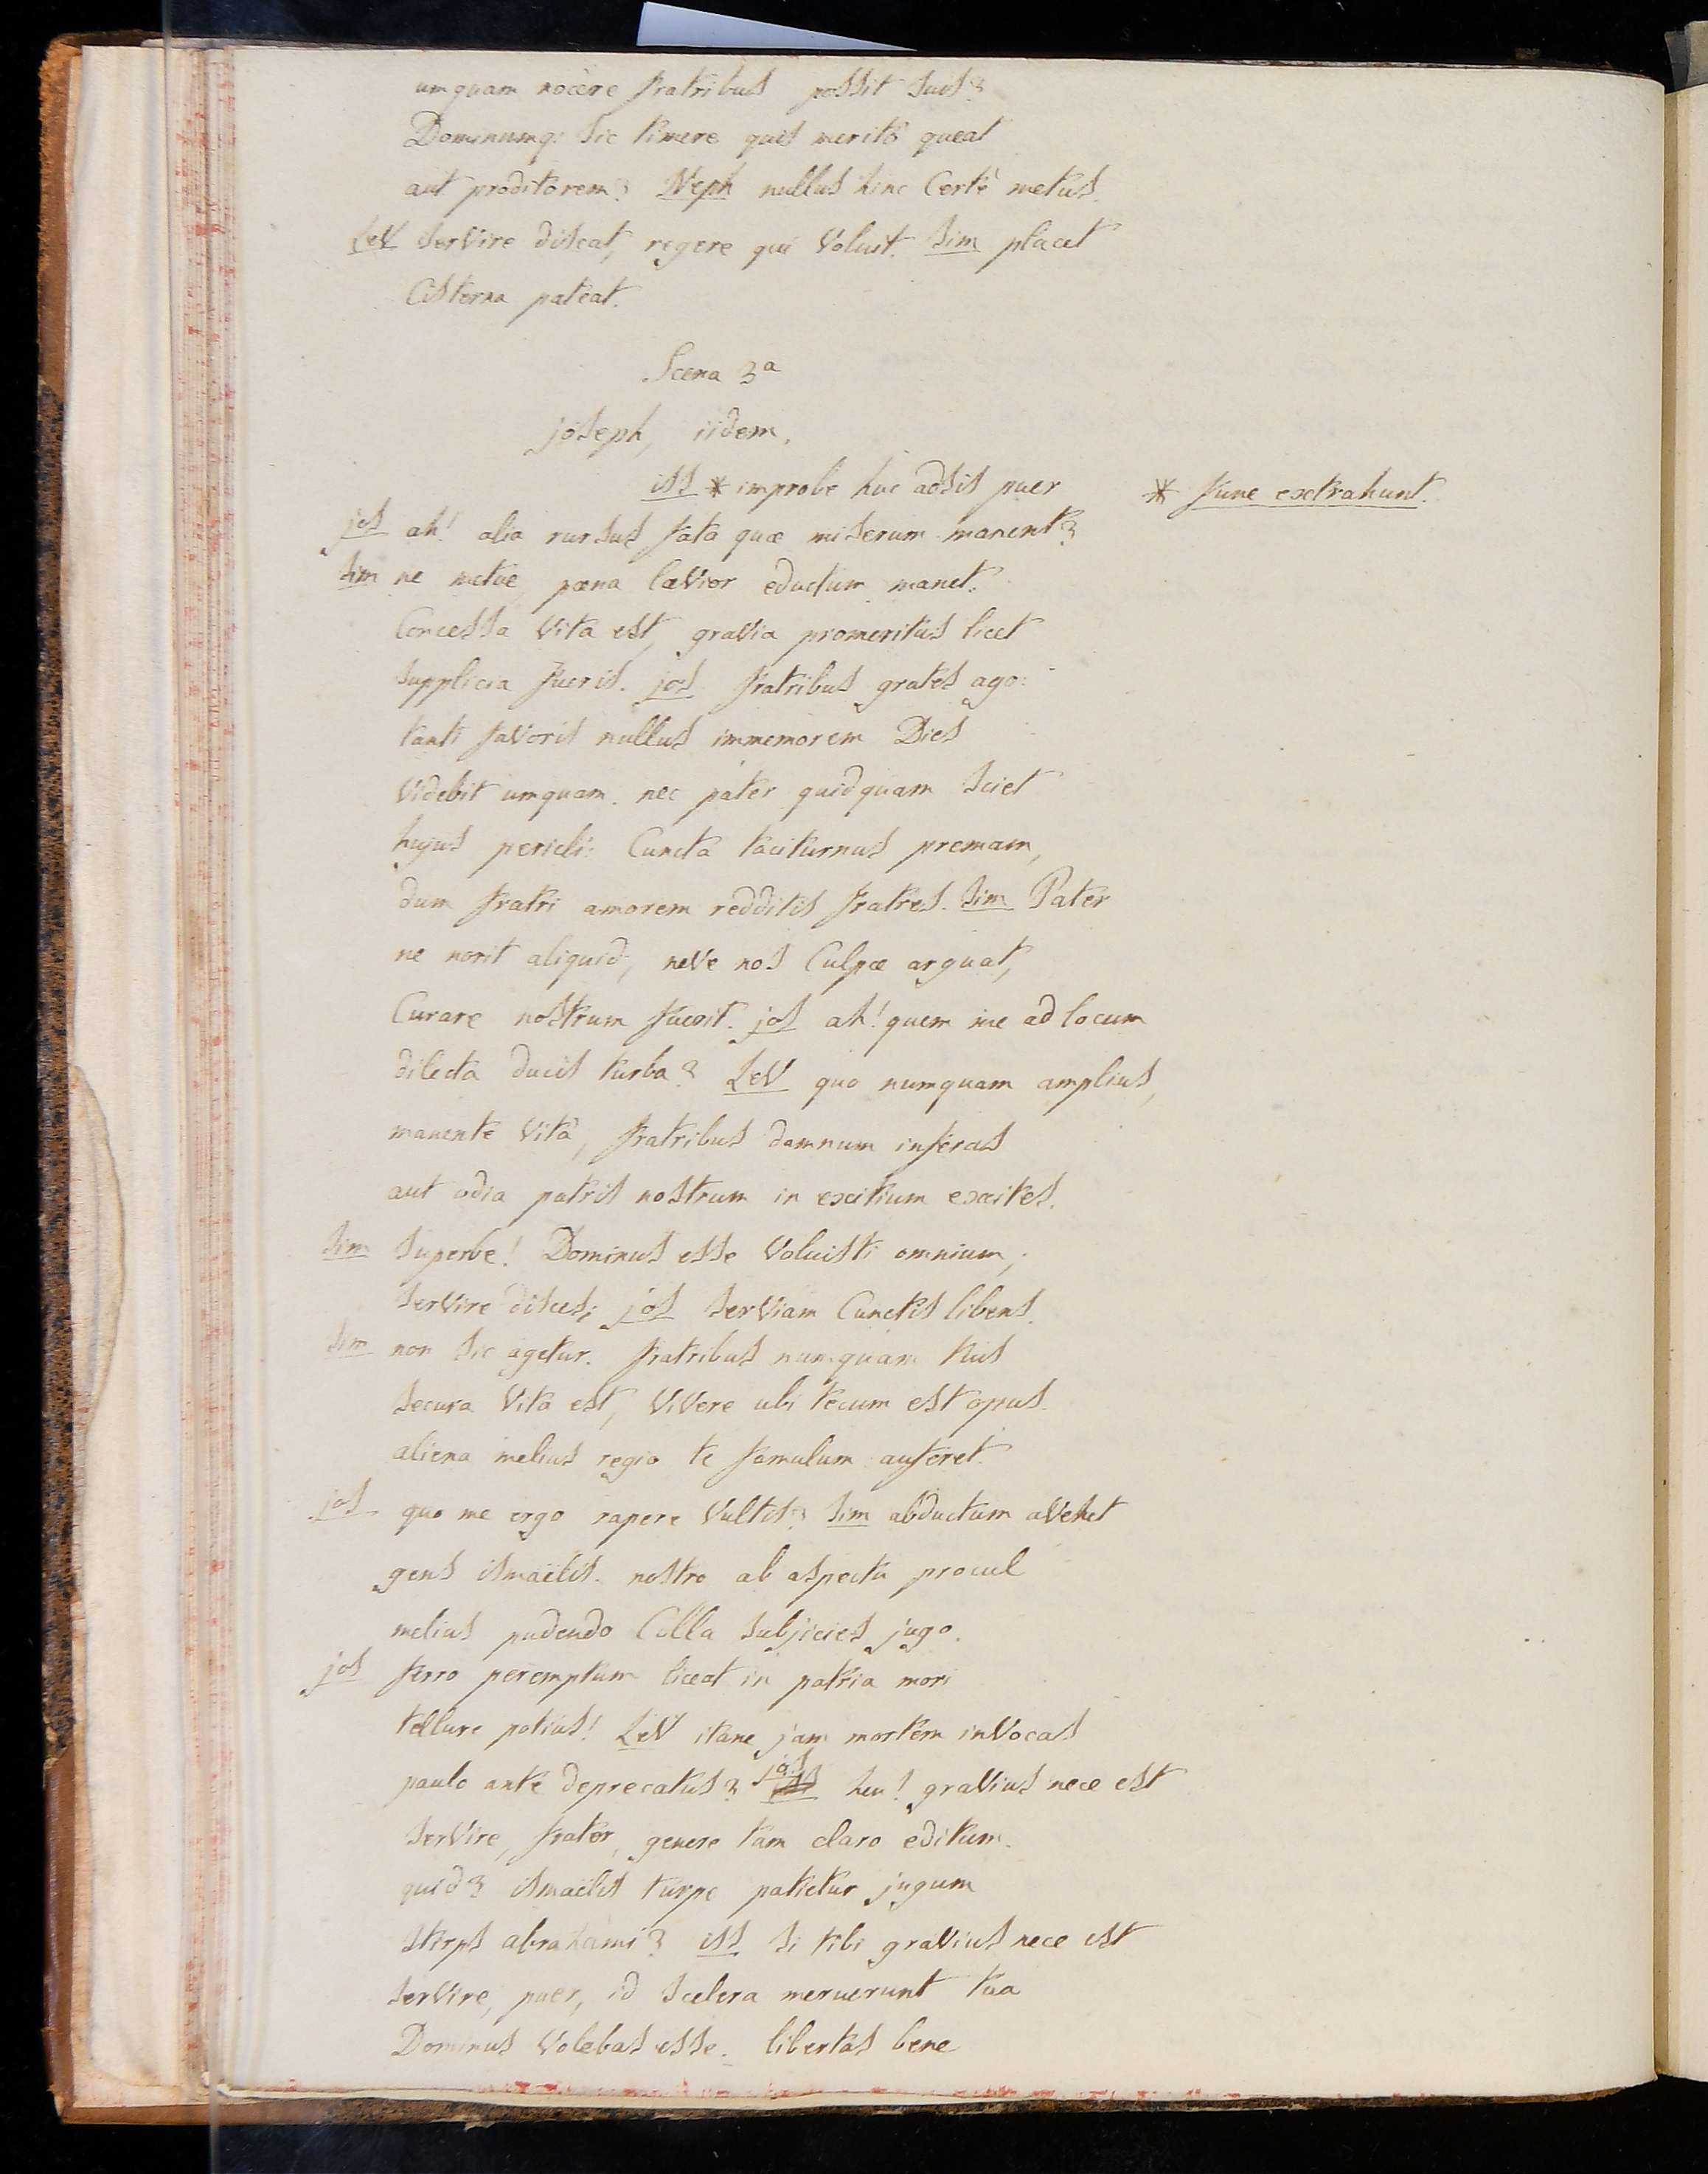 umquam nocere fratribus possit suis?
Dominumq; sic timere quis meritò queat
aut proditorem? Neph nullus hinc Certè metus.
Lev servire discat, regere qui Voluit. Sim placet
Cisterna pateat.
Scena 3a
joseph, iidem.
iss * improbe huc adsis puer * fune extrahunt.
jos ah! alia rursus fata quæ miserum manent?
Sim ne metue pœna lævior eductum manet.
Concessa Vita est, gravia promeritus licet
supplicia fueris. jos fratribus grates ago:
tanti favoris nullus immemorem Dies
Videbit umquam. nec pater quidquam sciet
hujus pericli: Cuncta taciturnus premam,
dum fratri amorem redditis fratres. Sim Pater
ne norit aliquid, neve nos Culpæ arguat,
Curare nostrum fuerit. jos ah! quem me ad locum
dilecta ducis turba? Lev quo numquam amplius,
manente Vitâ, fratribus damnum inferas
aut odia patris nostrum in exitium excites.
Sim Superbe! Dominus esse Voluisti omnium,
servire disces; jos serviam Cunctis libens.
Sim non sic agetur. fratribus numquam tuis
secura Vita est, Vivere ubi tecum est opus.
aliena melius regio te famulum auferet.
jos quo me ergo rapere Vultis? Sim abductum avehet
gens ismaëlis. nostro ab aspectu procul
melius pudendo Colla subjicies jugo.
jos ferro peremptum liceat in patria mori
tellure potius! Lev itane jam mortem invocas
paulo ante deprecatus? jos heu! gravius nece est
servire, frater, genere tam claro editum.
quid? ismaëlis turpe patietur jugum
stirps abrahami? iss si tibi gravius nece est
servire, puer, id scelera meruerunt tua
Dominus Volebas esse. libertas bene